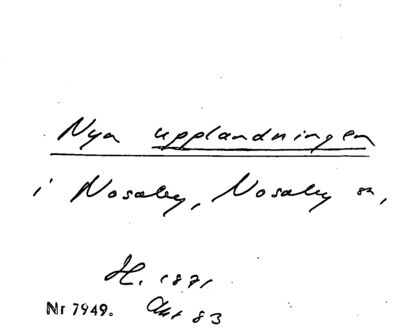 Nya upplandningen
i Nosaby, Nosaby sn,
H. 1871
Nr 7949. Akt 83